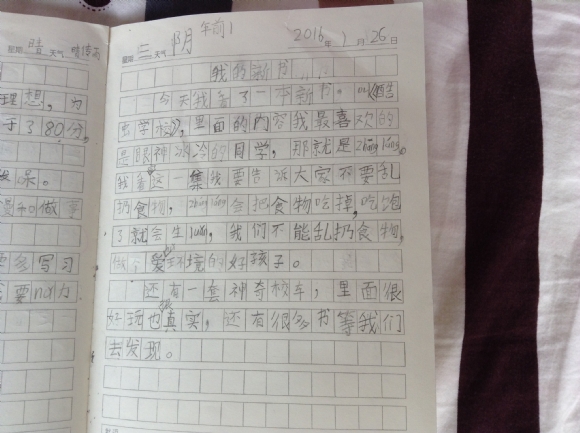 晴 天气 晴传雨
理想，为
于了80分，
漫和做事
要多写习
要nu力
星期 三 天气 阴 年前1 2016年 1月 26日
我的新书
今天我看了一本新书。叫《酷
虫学校》，里面的内容我最喜欢的
是眼神冰冷的同学，那就是zhāng láng。
我看这一集我要告诉大家不要乱
扔食物，zhāng láng会把食物吃掉，吃饱
了就会生luǎn，我们不能乱扔食物，
做个爱护环境的好孩子。
还有一套神奇校车，里面很
好玩也很真实，还有很多书等我们
去发现。